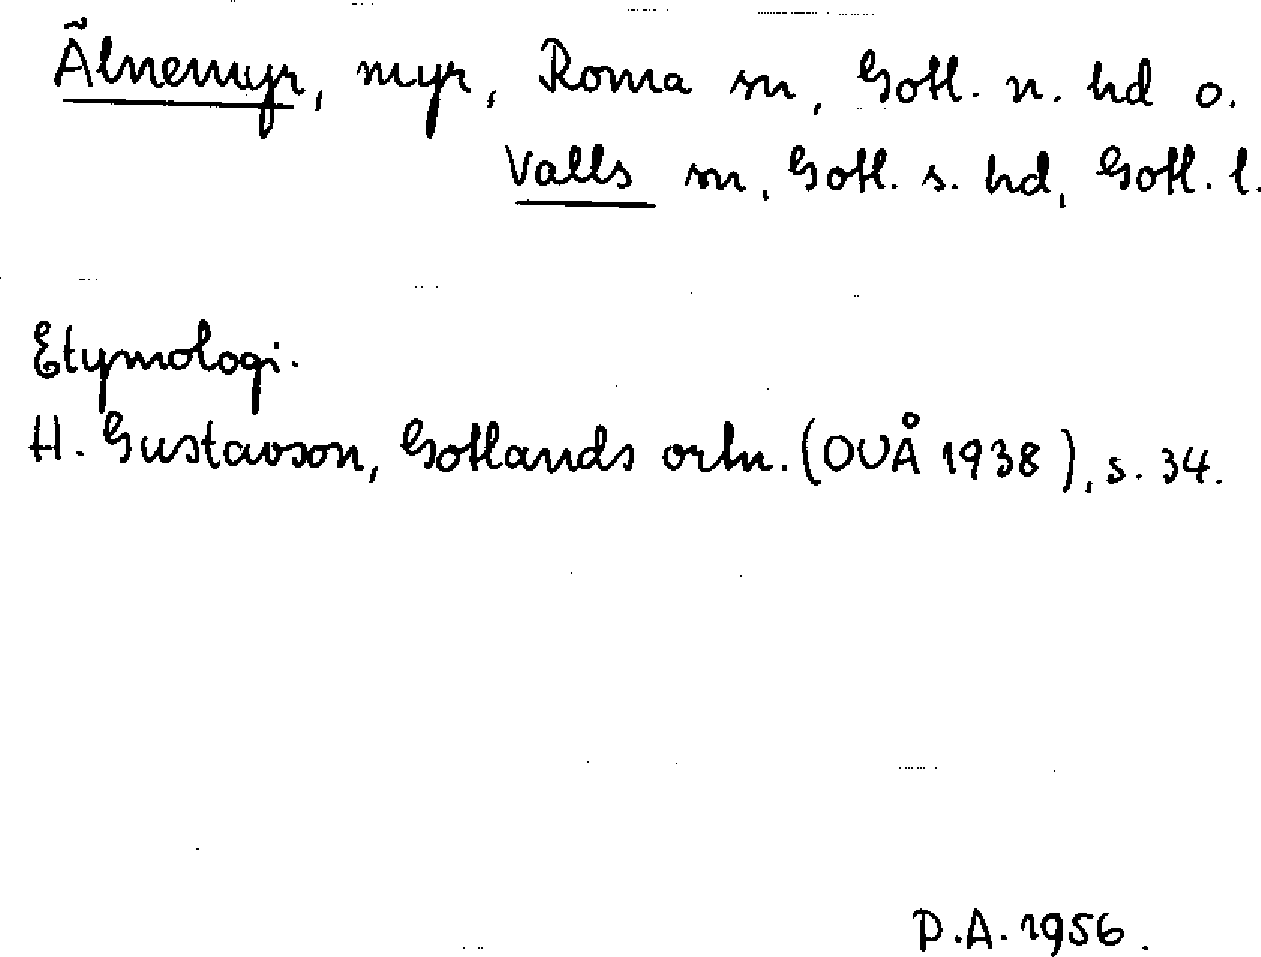 Älnemyr, myr, Roma sn, Gotl. n. hd o.
Valls sn, Gotl. s. hd, Gotl. l.
Etymologi.
H. Gustavson, Gotlands ortn. (OUÅ 1938), s. 34.
P.A. 1956.